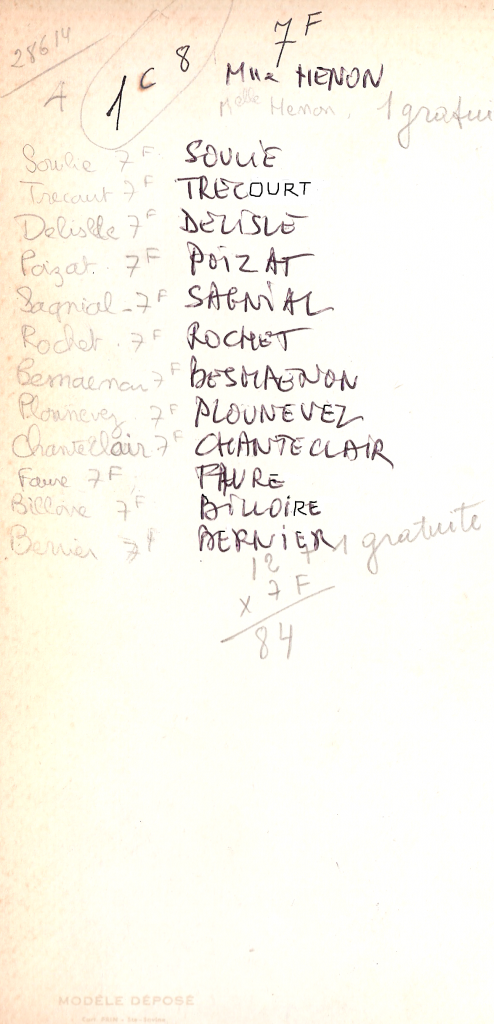 28614
7F
A 1 C 8 Mlle HENON
Melle Henon. 1 gratui
Soulie 7F SOULIE
Trecourt 7F TRECOURT
Delislle 7F DELISLE
Poizat. 7F POIZAT
Sagnial - 7F SAGNIAL
Rochet. 7F ROCHET
7F BESMAENON
Plounevez. 7F PLOUNEVEZ
Chanteclair 7F CHANTECLAIR
Faure 7F FAVRE
Billoire 7F BILLOIRE
Bernier 7F BERNIER 1 gratuite
12
x 7 F
84
MODÈLE DÉPOSÉ